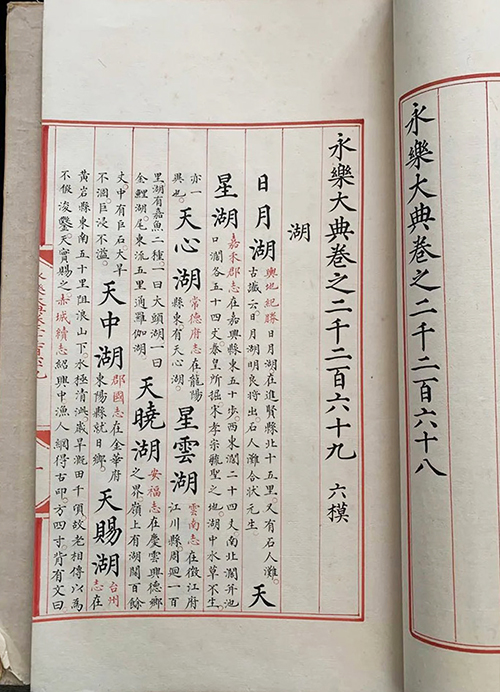 永樂大典卷之二千二百六十八
永樂大典卷之二千二百六十九 六模
湖
日月湖 輿地紀勝日月湖在進賢縣北十五里。又有石人灘。
古讖云。日月湖明良將出石人灘合狀元生。
天
星湖 嘉禾郡志在嘉興縣東五十步西東濶二十四丈南北濶并池
口濶各五十四丈秦皇所掘宋孝宗毓聖之地。湖中水草不生。
亦一
興也。
天心湖 常德府志在龍陽
縣東有天心湖。
星雲湖 雲南志在徵江府
江川縣周廻一百
里湖有嘉魚二種。一曰大頭湖。一曰
金鯉湖。尾東流五里通羅伽湖。
天曉湖 安福志在慶雲興德鄉
之界嶺上有湖闊百餘
丈中有巨石大旱
不涸。巨浸不溢。
天中湖 郡國志在金華府
東陽縣就日鄉。
天賜湖 台州
志在
黃岩縣東南五十里阻浪山下。水極清泚。歲旱溉田千頃故老相傳以為
不假浚鑿。天實賜之。赤城續志紹興中漁人網得古印。方四寸。背有文曰